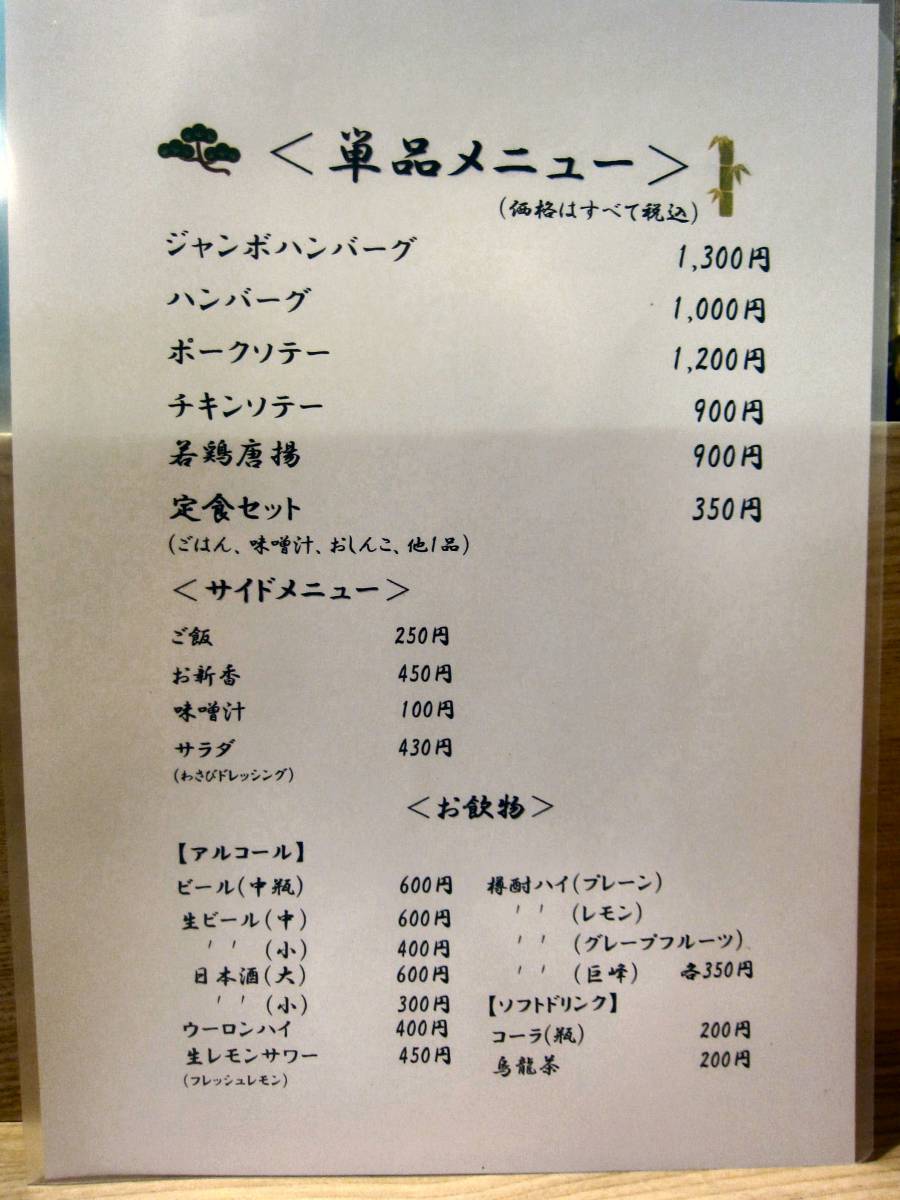 ＜単品メニュー＞
(価格はすべて税込)
ジャンボハンバーグ 1,300円
ハンバーグ 1,000円
ポークソテー 1,200円
チキンソテー 900円
若鶏唐揚 900円
定食セット 350円
(ごはん、味噌汁、おしんこ、他1品)
＜サイドメニュー＞
ご飯 250円
お新香 450円
味噌汁 100円
サラダ 430円
(わさびドレッシング)
＜お飲物＞
【アルコール】
ビール(中瓶) 600円
生ビール(中) 600円
〃 (小) 400円
日本酒(大) 600円
〃 (小) 300円
ウーロンハイ 400円
生レモンサワー 450円
(フレッシュレモン)
樽酎ハイ(プレーン)
〃 (レモン)
〃 (グレープフルーツ)
〃 (巨峰) 各350円
【ソフトドリンク】
コーラ(瓶) 200円
烏龍茶 200円